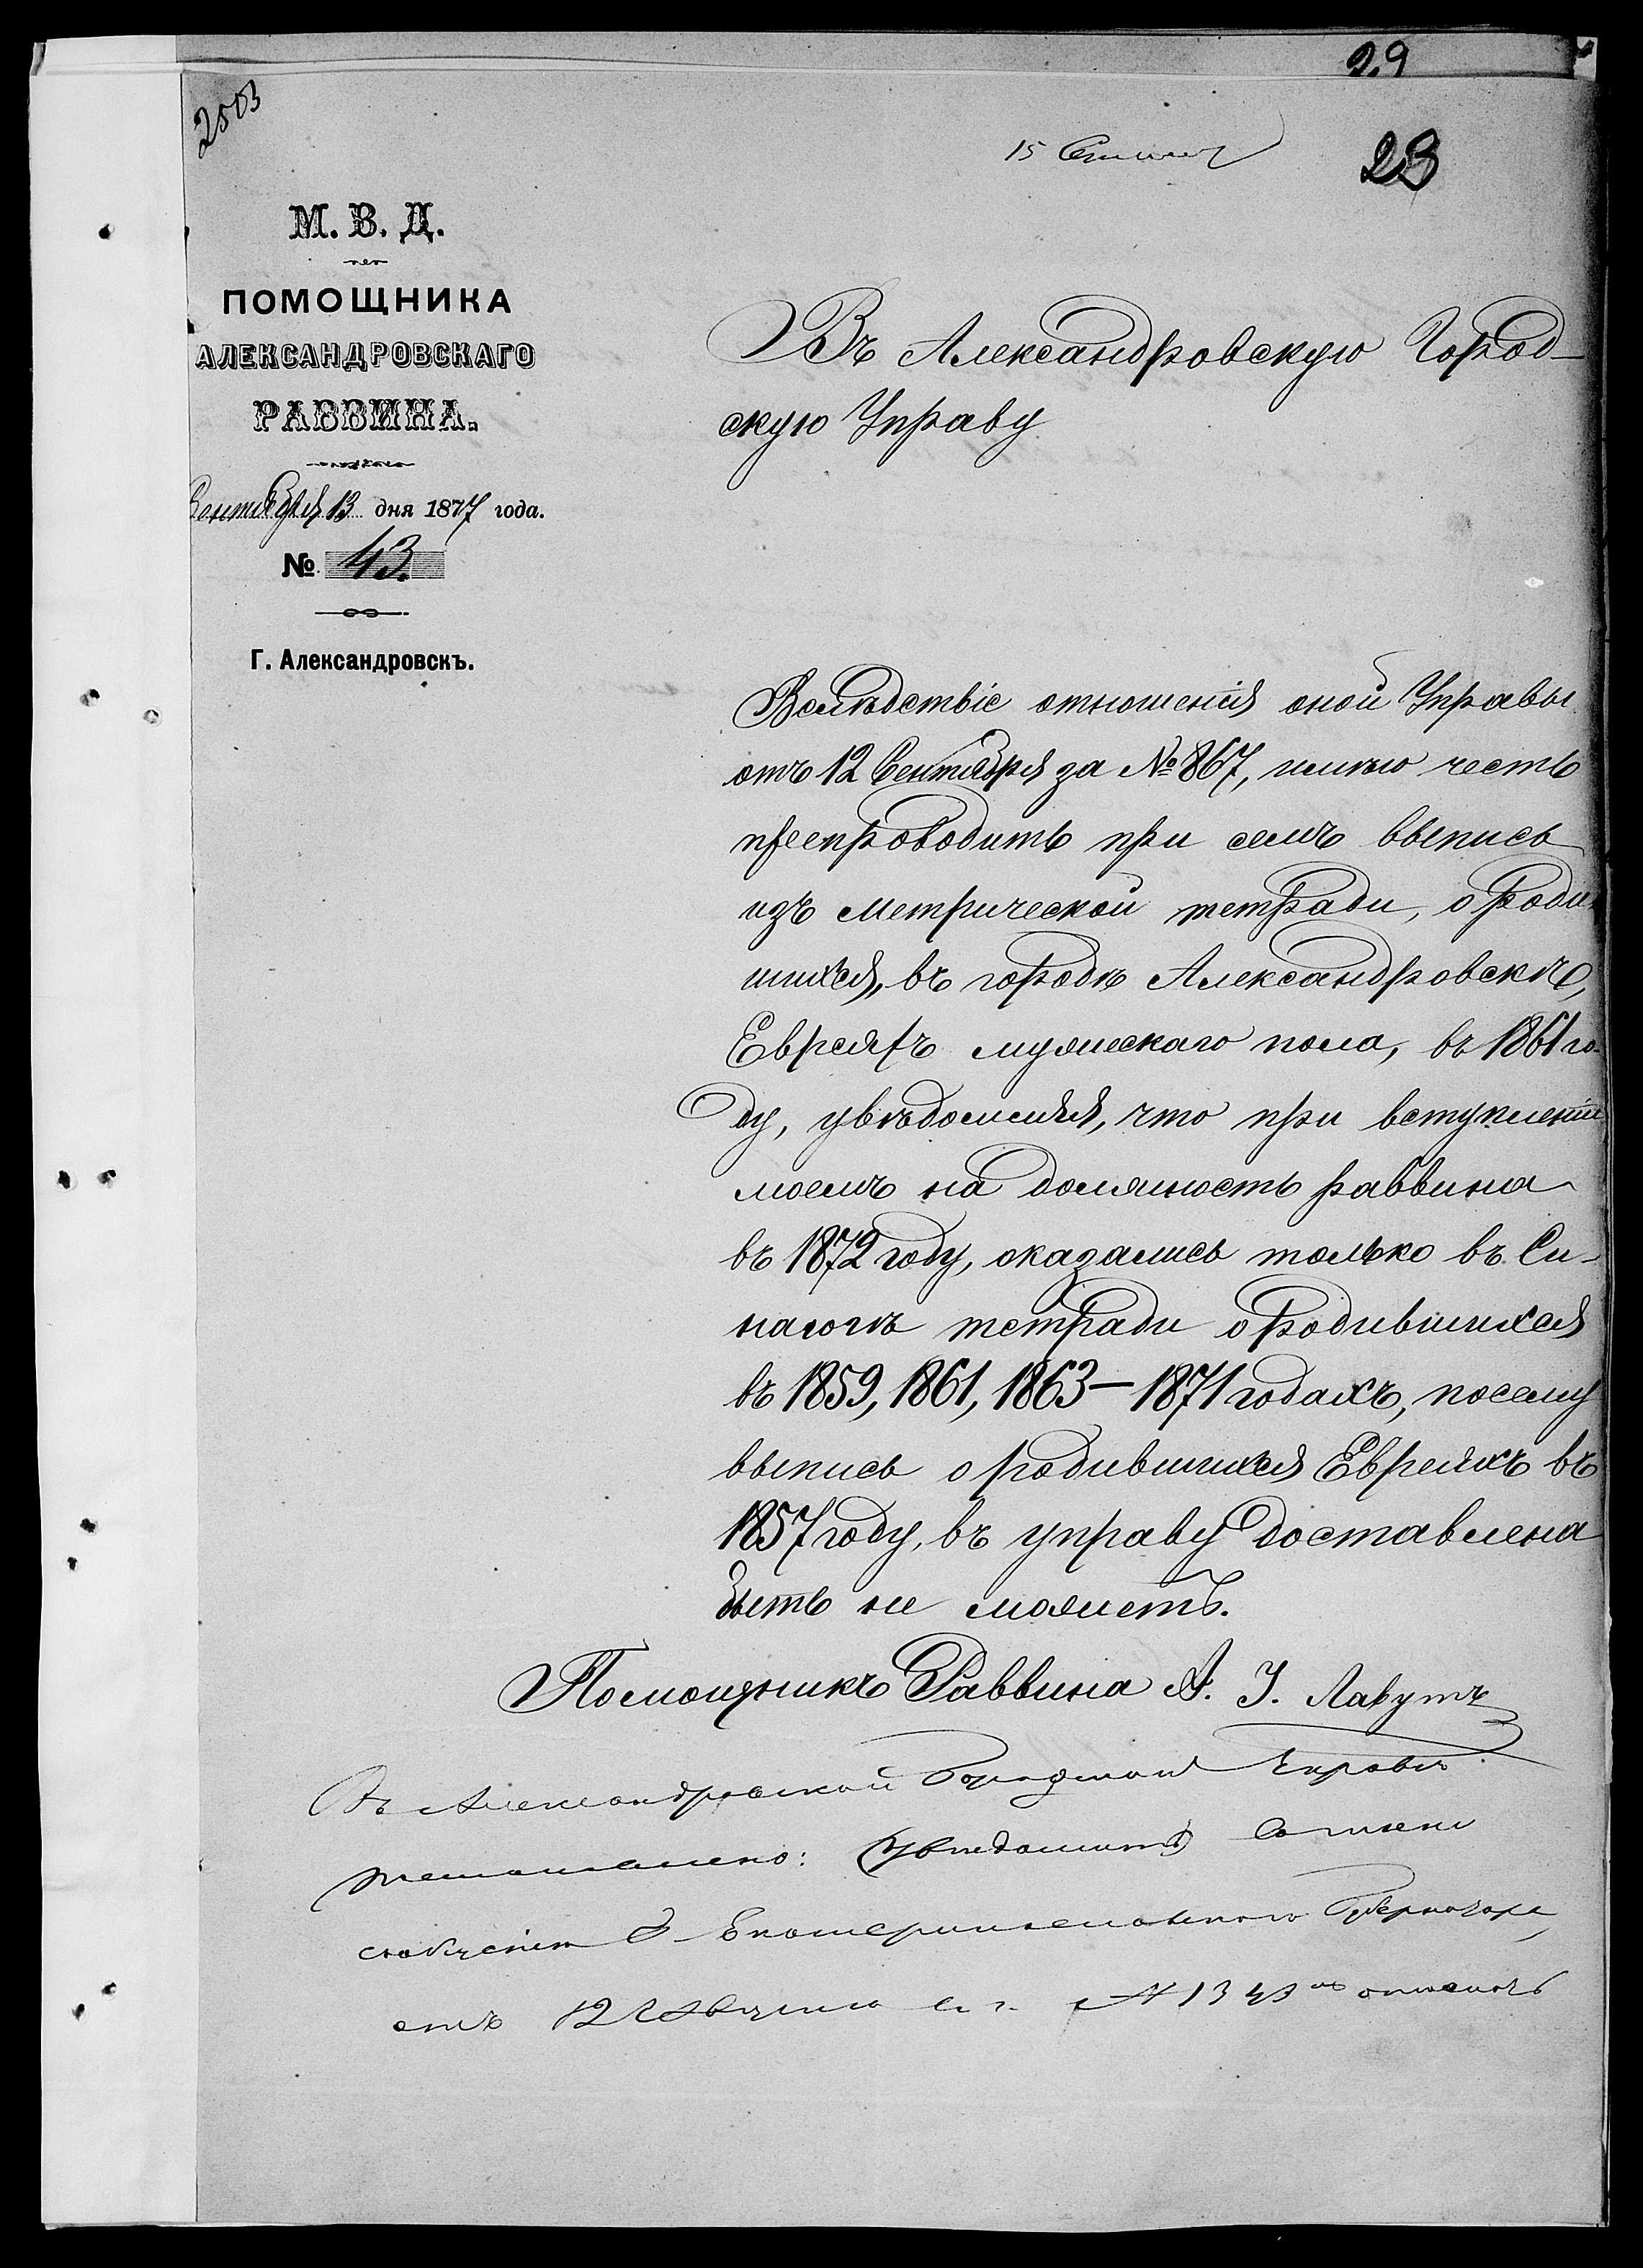 29
2503
15 Сентября
23
М. В. Д.
ПОМОЩНИКА
АЛЕКСАНДРОВСКАГО
РАВВИНА.
Сентября 13 дня 1877 года.
№ 43.
Г. Александровскъ.
Въ Александровскую Город-
скую Управу
Вслѣдствіе отношенія оной Управы
отъ 12 Сентября за № 867, имѣю честь
препроводить при семъ выпись
изъ метрической тетради, о роди
шихся, въ городѣ Александровскѣ,
Евреяхъ мужескаго пола, въ 1861 го-
ду, увѣдомляя, что при вступленіи
моемъ на должность раввина
въ 1872 году, оказались только въ Си-
нагогѣ тетради о родившихся
въ 1859, 1861, 1863—1871 годахъ, посему
выпись о родившихся Евреяхъ въ
1857 году, въ управу доставлена
быть не можетъ.
Помощникъ Раввина А. І. Лавутъ
Въ Александровской Городской Управѣ
Увѣдомить
Екатеринославскаго Губернатора
отъ 12 с. г. № 1343